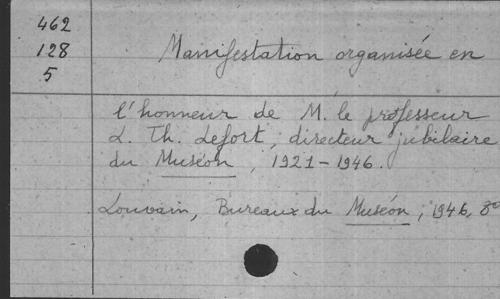 462
128
5
Manifestation organisée en
l'honneur de M. le professeur
L. Th. Lefort, directeur jubilaire
du Muséon, 1921-1946.
Louvain, Bureaux du Muséon, 1946, 8º